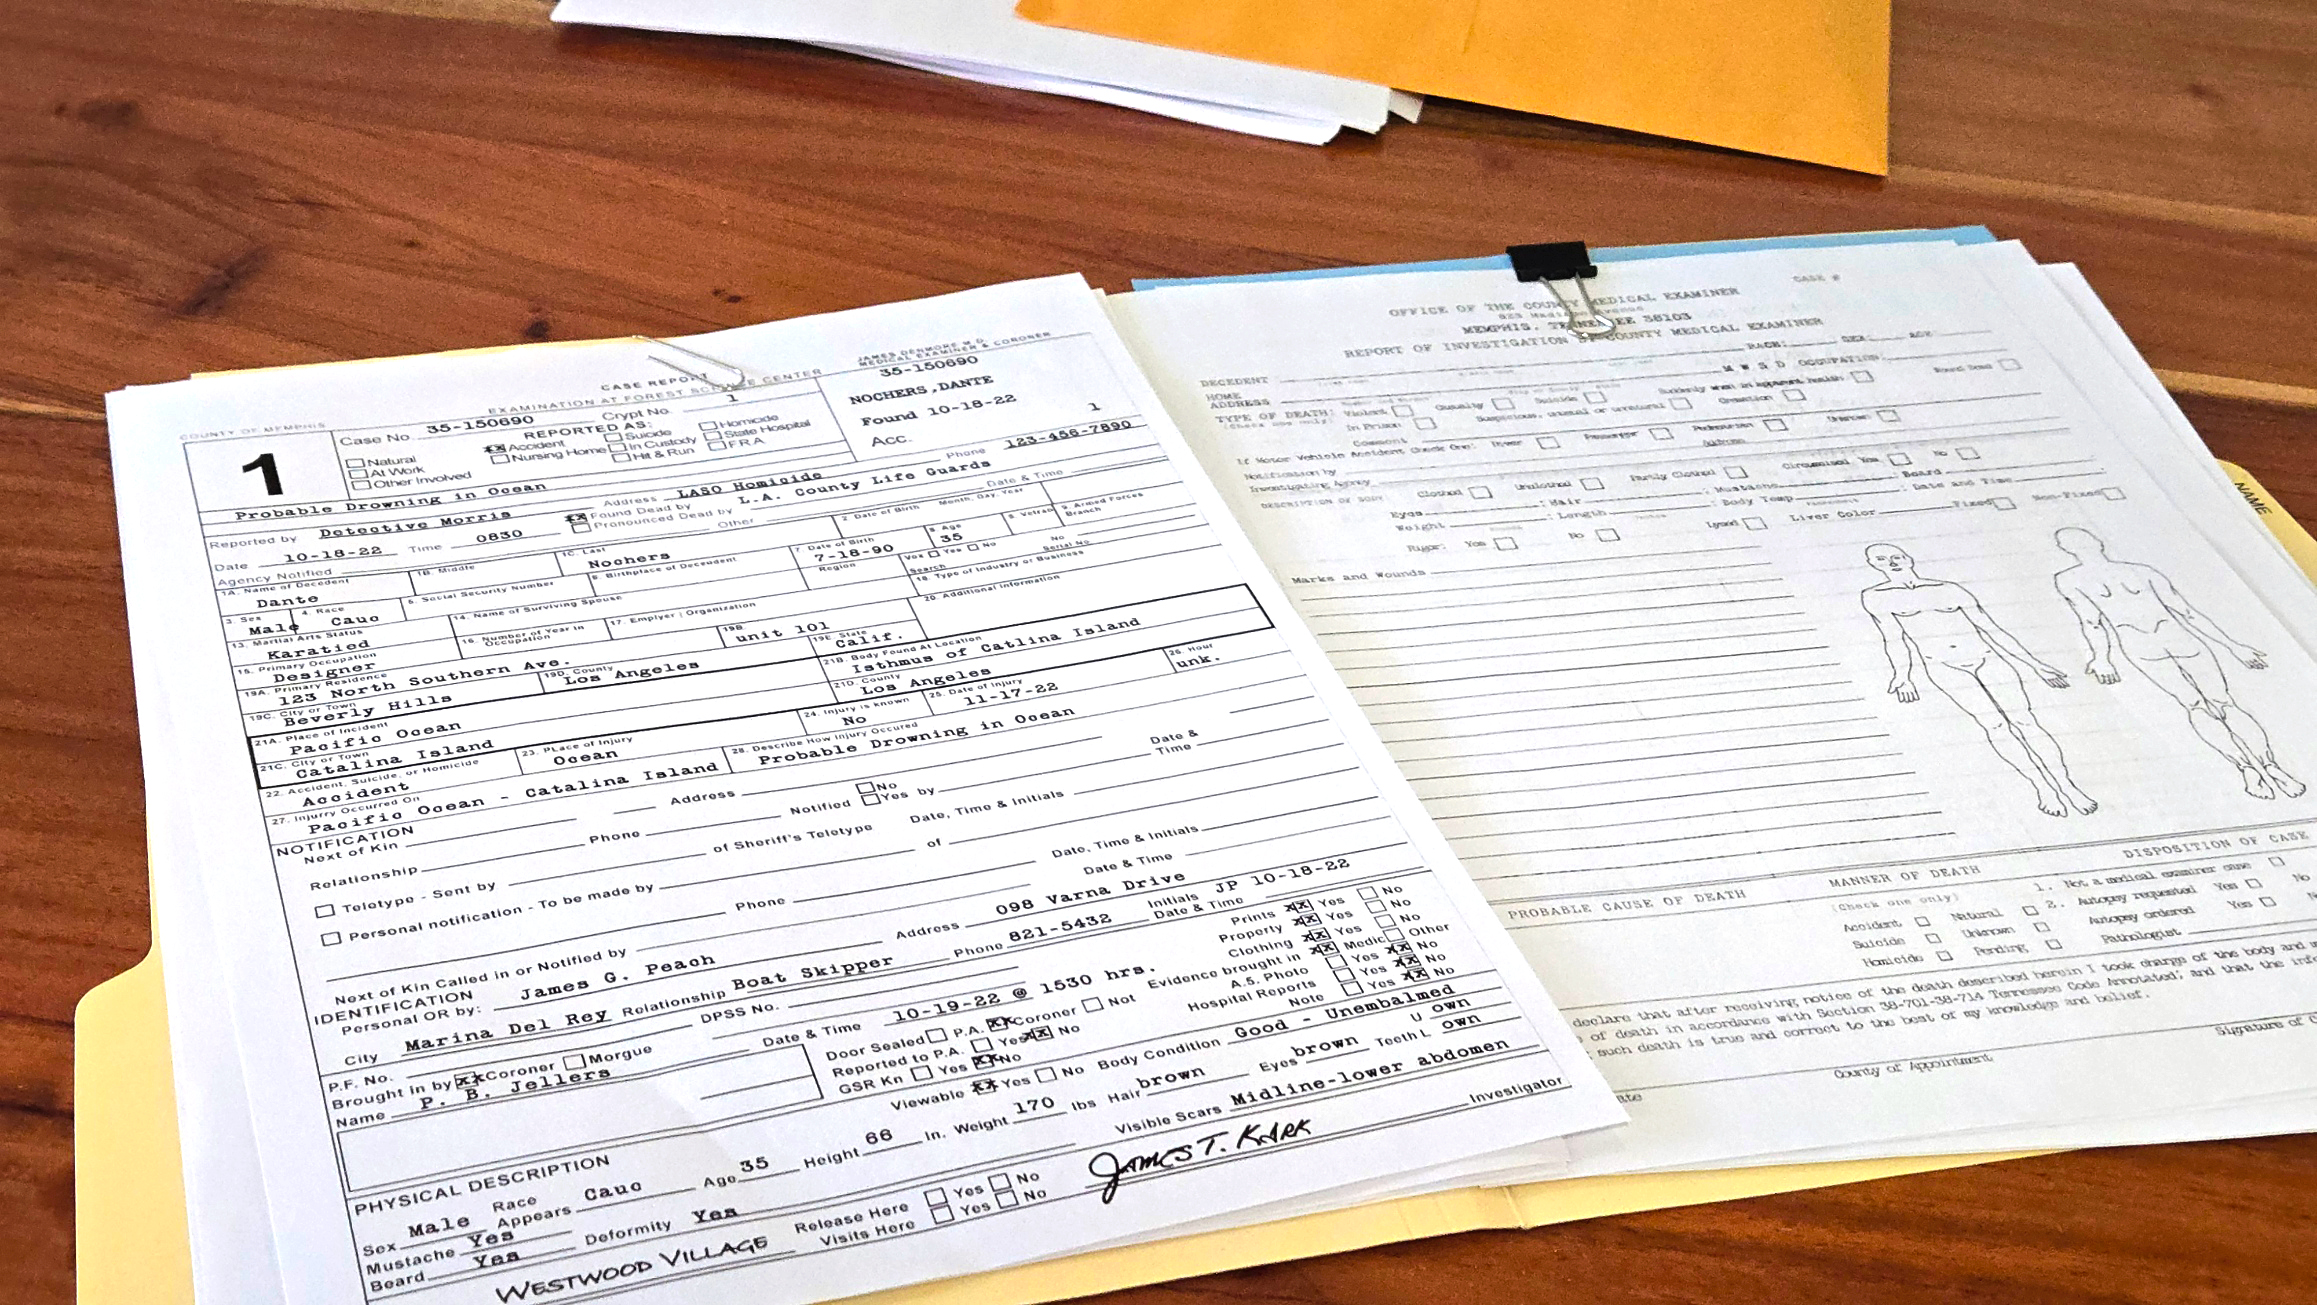 COUNTY OF MEMPHIS
CASE REPORT
EXAMINATION AT FOREST SCIENCE CENTER
JAMES DENMORE M.D.
MEDICAL EXAMINER & CORONER
1
Case No. 35-150690 Crypt No. 1
REPORTED AS:
Natural xx Accident Suicide Homicide
At Work Nursing Home In Custody State Hospital
Other Involved Hit & Run FRA
35-150690
NOCHERS, DANTE
Found 10-18-22
Acc. 1
Probable Drowning in Ocean
Address LASO Homicide Phone 123-456-7890
Reported by Detective Morris xx Found Dead by L.A. County Life Guards
Date 10-18-22 Time 0830 Pronounced Dead by Other Date & Time
Agency Notified
1A. Name of Decedent 1B. Middle 1C. Last 2. Date of Birth Month, Day, Year
Dante Nochers
3. Sex 4. Race 5. Social Security Number 6. Birthplace of Decedent 7. Date of Birth 8. Age 8. Vetran 9. Armed Forces Branch
Male Cauc 7-18-90 35
Region Vox Yes No No Serial No
Search
13. Martial Arts Status 14. Name of Surviving Spouse 18. Type of Industry or Business
Karatiod
15. Primary Occupation 16. Number of Year in Occupation 17. Emplyer / Organization
Designer
19A. Primary Residence 19B. 20. Additional Information
123 North Southern Ave. unit 101
19C. City or Town 19D. County 19E. State
Beverly Hills Los Angeles Calif.
21A. Place of Incident 21B. Body Found At Location
Pacific Ocean Isthmus of Catlina Island
21C. City or Town 21D. County
Catalina Island Los Angeles
22. Accident, Suicide, or Homicide 23. PLace of Injury 24. Injury is known 25. Date of Injury 26. Hour
Accident Ocean No 11-17-22 unk.
27. Injurry Occurred On 28. Describe How Injury Occured
Pacific Ocean - Catalina Island Probable Drowning in Ocean
NOTIFICATION
Next of Kin Address Notified No Yes by Date & Time
Relationship Phone
Teletype - Sent by of Sheriff's Teletype Date, Time & Initials
Personal notification - To be made by of Date, Time & Initials
Phone Date & Time
Next of Kin Called in or Notified by Address 098 Varna Drive Initials JP 10-18-22
IDENTIFICATION
Personal OR by: James G. Peach Phone 821-5432 Date & Time
City Marina Del Rey Relationship Boat Skipper
Prints xx Yes No
Property xx Yes No
Clothing xx Yes No
Evidence brought in xx Medic Other
A.S. Photo Yes xx No
Hospital Reports Yes xx No
Note Yes xx No
P.F. No. DPSS No. Date & Time 10-19-22 @ 1530 hrs.
Brought In by xx Coroner Morgue
Name P. B. Jellers
Door Sealed P.A. xx Coroner Not
Reported to P.A. Yes xx No
GSR Kn Yes xx No
Viewable xx Yes No Body Condition Good - Unembalmed
PHYSICAL DESCRIPTION
Sex Male Race Appears Cauc Age 35 Height 66 In. Weight 170 lbs Hair brown Eyes brown Teeth U own L own
Mustache Yes
Beard Yes Deformity Yes Visible Scars Midline-lower abdomen
Release Here Yes No
Visits Here Yes No
WESTWOOD VILLAGE
JAMES T. KARK Investigator
CASE #
OFFICE OF THE COUNTY MEDICAL EXAMINER
MEMPHIS, TENNESSEE 38103
REPORT OF INVESTIGATION BY COUNTY MEDICAL EXAMINER
DECEDENT RACE: SEX: AGE:
HOME ADDRESS M W S D OCCUPATION
TYPE OF DEATH: Violent Casualty Suicide Suddenly when in apparent health Found Dead
(Check one only) In Prison Suspicious, unusual or unnatural Cremation
Comment
If Motor Vehicle Accident, Check One: Driver Passenger Pedestrian Unknown
Notification by Address
Investigating Agency
DESCRIPTION OF BODY Clothed Unclothed Partly Clothed Circumcised Yes No
Eyes Hair Mustache Beard
Weight Length Body Temp Date and Time
Rigor: Yes No Lysed Liver Color Fixed Non-Fixed
Marks and Wounds
PROBABLE CAUSE OF DEATH
MANNER OF DEATH
(Check one only)
Accident Natural
Suicide Unknown
Homicide Pending
DISPOSITION OF CASE
1. Not a medical examiner case
2. Autopsy requested Yes No
Autopsy ordered Yes No
Pathologist
declare that after receiving notice of the death described herein I took charge of the body and
of death in accordance with Section 38-701-38-714 Tennessee Code Annotated; and that the
such death is true and correct to the best of my knowledge and belief.
County of Appointment
Signature of
NAME